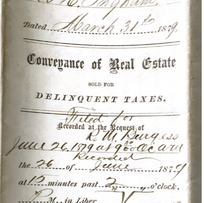 Ingham
Dated March 31st 1879.
Conveyance of Real Estate
SOLD FOR
DELINQUENT TAXES.
Filed for
Recorded at the Request of
R. M. Burgess
June 26 1879 at 9 A M
Recorded
the 26 of June 1879
at 12 minutes past 2 o'clock,
P M., in Liber